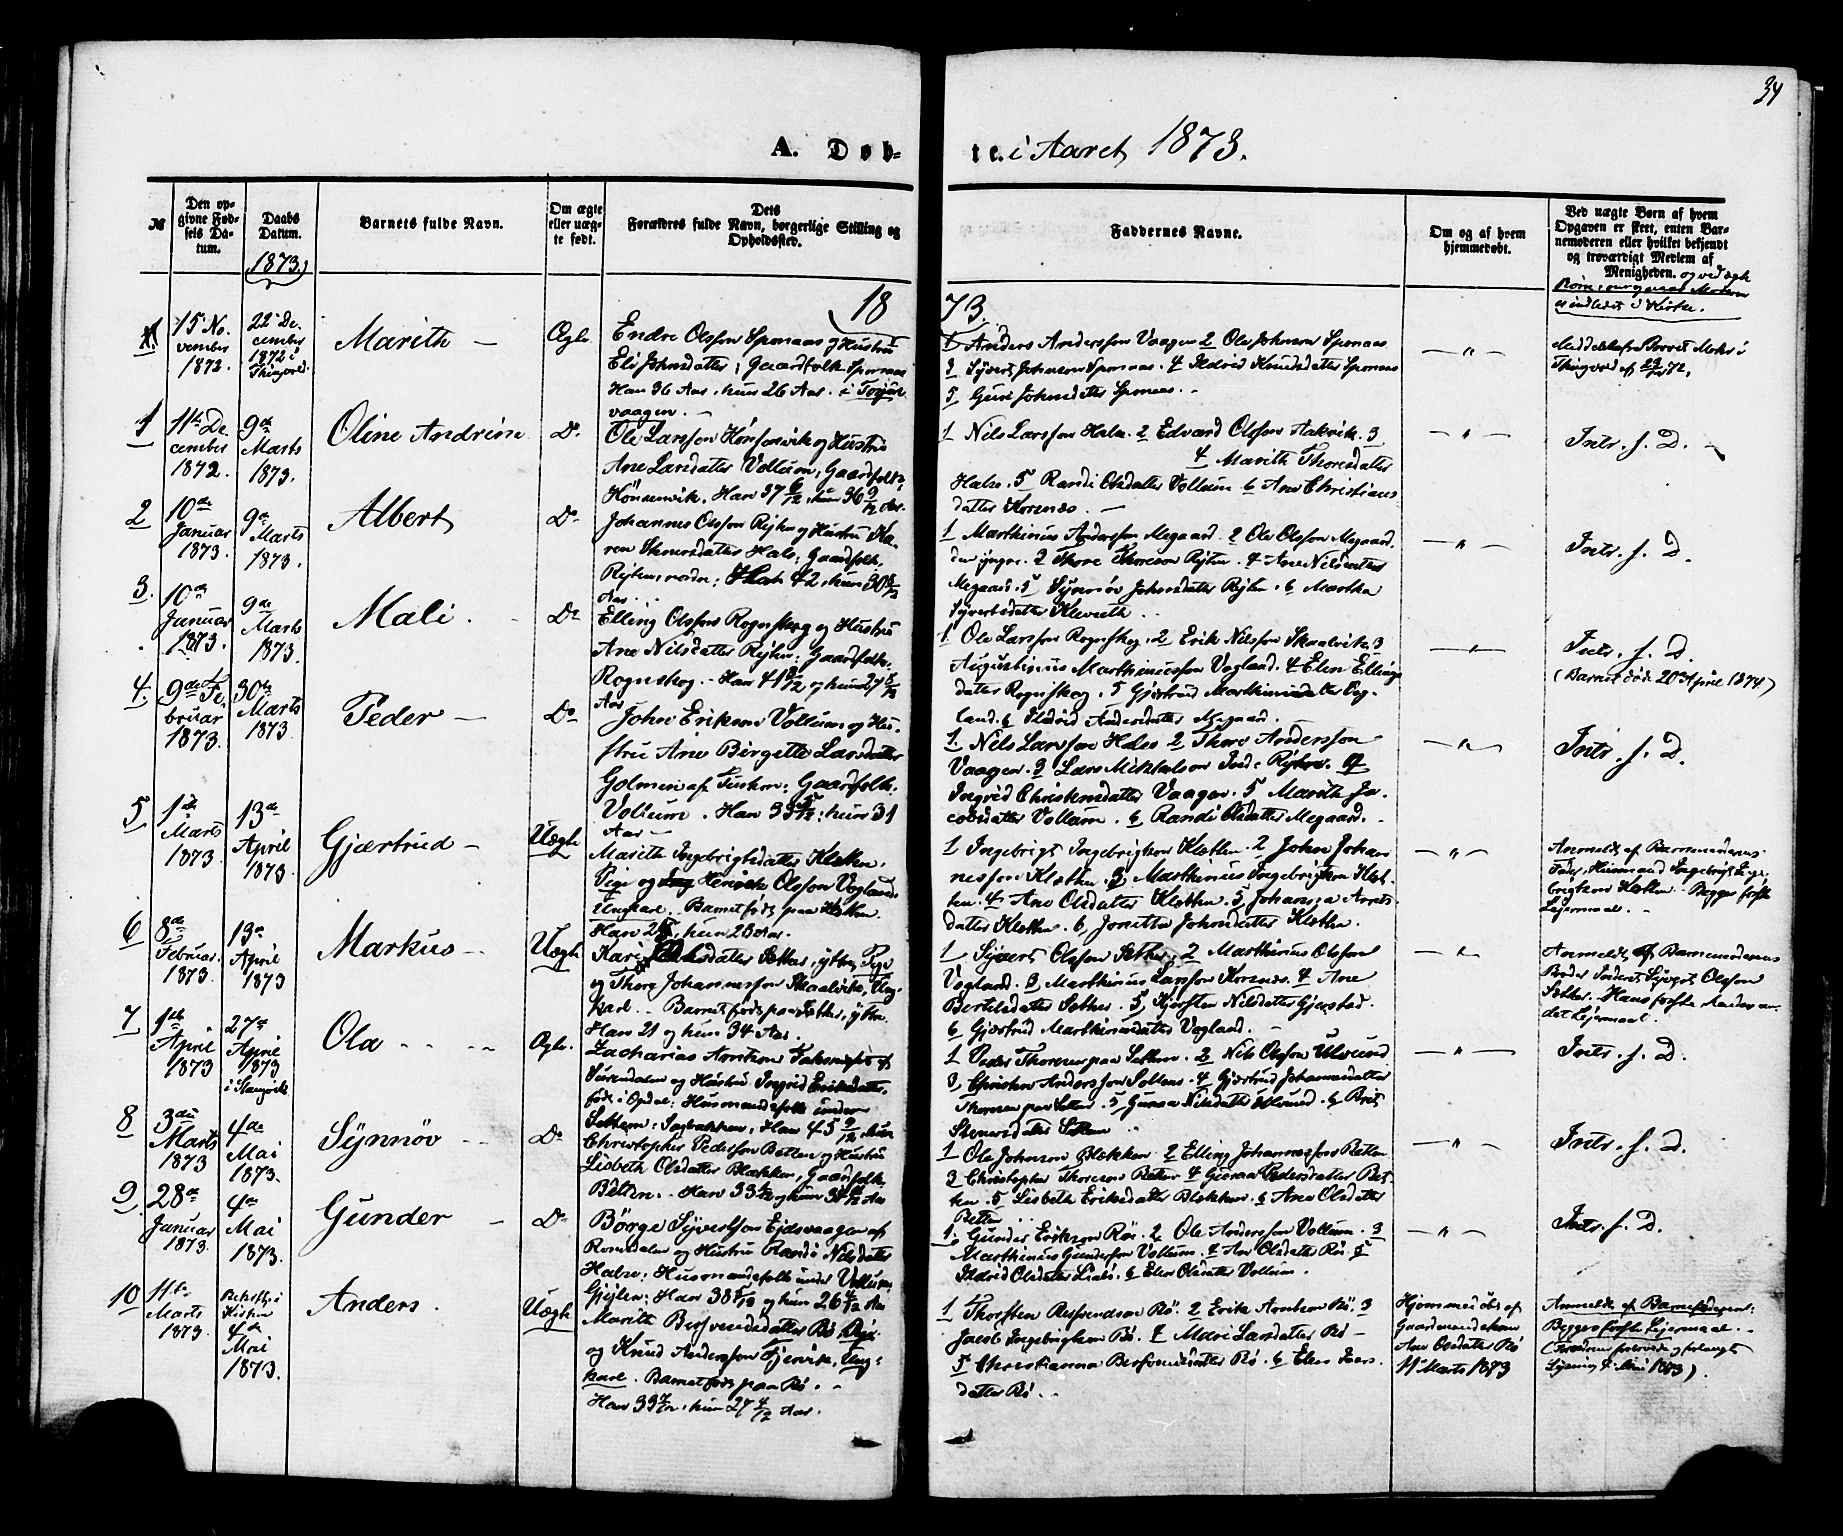 34
A. Døb-
te. i Aaret 1873.
№
Den op-
givne Fød-
sels Da-
tum.
Daabs
Datum.
1873.
Barnets fulde Navn.
Om ægte
eller uæg-
te født.
Dets
Forældres fulde Navn, borgerlige Stilling og
Opholdssted.
Faddernes Navne.
Om og af hvem
hjemmedøbt.
Ved uægte Børn af hvem
Opgaven er skeet, enten Bar-
nemoderen eller hvilket bekjendt
og troværdigt Medlem af
Menigheden. og ved ægte
18
73.
1
15 No.
vember
1872.
22 De.
cember
1872 i
Thingvold.
Marith —
Ægte
Endre Olsson Spornaas og Hustru
Eli Johnsdatter; Gaardfolk Spornaas
Han 36 Aar, hun 26 Aar. i
vaagen. —
1 Anders Anderssøn Vaagen 2 Ole Johnsen Spornaas
3 Syvert Johnsen Spornaas. 4 Ildrid Knudsdatter Spornaas
5 Guri Johnsdatter Spornaas. —
— " —
Thingvold af
1
11te De
cember
1872.
9de
Marts
1873.
Oline Andrine
Do
Ole Larsson Hønsonvik og Hustru
Ane Larsdatter Vollum, Gaardfolk,
Hønsenvik. Han 37 6/12, hun 36 9/12 Aar.
1 Nils Larsson Halse. 2 Edvard Olsson Aakvik. 3
4 Marith Thoresdatter
Halse. 5 Randi Olsdatter Vollum 6 Ane Christians
datter Korsnæs. —
— " —
Intr. s. D. —
2
10de
Januar
1873.
9de
Marts
1873.
Albert
Do
Johannes Olsson Rijken og Hustru Ka-
ren Halse; Gaardfolk,
Han 42, hun 30 5/12
Aar.
1 Marthinus Anderssøn Megaard. 2 Ole Olsson Megaard.
den yngre. 3 Thore Thoresen Rijken. 4 Ane Nilsdatter
Megaard. 5 Synnøv Johnsdatter Rijken. 6 Martha
Syvertsdatter
— " —
Intr. s. D.
3.
10de
Januar
1873.
9de
Marts
1873.
Mali.
Do
Elling Olsson Rognskog og Hustru
Ane Nilsdatter Rijken; Gaardfolk.
Rognskog. — Han 41 8/12 og hun 27 8/12
Aar
1 Ole Larsson Rognskog, 2 Erik Nilsson Skaalvik. 3
Augustinius Marthinussøn Vogland. 4 Elen Ellings
datter Rognskog. 5 Gjertrud Marthinusdatter Vog-
land. 6 Ildrid Andersdatter Megaard.
— " —
Intr. s. D.
(Barnet død 20 April 1874)
4.
9de Fe.
bruar
1873.
30te
Marts
1873.
Peder —
Do
John Eriksen Vollum og Hu-
stru Ane Birgitte Larsdatter
Golmen af Tustern: Gaardfolk.
Vollum. Han 33 hun 31
Aar —
1 Nils Larsson Halse 2 Thore Anderssøn
Vaagen. 3 Lars Mikkelsen 4
Ingrid Christensdatter Vaagen. 5 Marith Ja-
cobsdatter Vollum. 6 Randi Olsdatter Megaard. —
— " —
Intr. s. D.
5
1ste
Marts
1873
13de
April
1873.
Gjærtrud —
Uægte
Marith Ingebrigtsdatter Kletten.
Pige og Henrik Olsson Vogland
Ungkarl. Barnet født paa Kletten.
Han 24, hun 23 Aar.
1 Ingebrigt Ingebrigtsen Kletten. 2 John Johan
nesson Kletten. 3 Marthinus Ingebrigtsen Klet-
ten. 4 Ane Olsdatter Kletten. 5 Johanna Arnts-
datter Kletten. 6 Jonetta Johnsdatter Kletten.
— " —
Anmeldt af Barnemoderens
Fader, Huusmand Ingebrigt Inge
brigtsen Kletten. Begges første
Lejermaal. —
6
8de
Februar.
1873.
13de
April
1873
Markus —
Uægte
Kari Olsdatter Sether, ytter, Pige
og Thore Johannesson Skaalvik, Ung-
karl. — Barnet født paa Sether, ytter
Han 21 og hun 34 Aar.
1 Syvert Olsson Sether. 2 Marthinus Olsson
Vogland. 3 Marthinus Larsson Korsnæs. 4 Ane
Bertelsdatter Sether. 5 Kjersten Nilsdatter Gjerstad.
6 Gjertrud Marthinusdatter Vogland. —
— " —
Anmeldt af Barnemoderens
Broder Inderst Syvert Olsson
Sether. Hans første hendes an-
det Lejermaal.
7
1ste
April
1873
27de
April
1873
i Stangvik
Ola — — —
Ægte.
Zacharias Arntsen
Surendalen og Hustru Ingrid Eriksdatter,
født i Opdal; Husmandsfolk under
Settem: Han 45 9/12, hun
1 Peder Thoresen paa Settem. 2 Nils Olsson Ulvund
3 Christen Anderssøn Settem. 4 Gjertrud Johannesdatter
Thoresen paa Settem. 5 Guraa Nilsdatter Ulvund. 6 Brit
Stenersdatter Settem
— " —
Intr. s. D.
8
3die
Marts
1873
4de
Mai
1873.
Synnøv — —
Do
Christopher Pedersson Betten og Hustru
Lisbeth Olsdatter Blekken, Gaardfolk
Betten. — Han 33 og hun 38 Aar
1 Ole Johnsen Blekken 2 Elling Johannesson Betten
3 Christopher Thoresen Betten 4 Guraa Pedersdatter Bet-
ten. 5 Lisbeth Eriksdatter Blekken. 6 Ane Olsdatter
Betten
— " —
Intr. s. D.
9.
28de
Januar
1873.
4de
Mai
1873.
Gunder —
Do
Børge Syvertsen Ejdsvaagen af
Romsdalen og Hustru Randi Nilsdatter
Halse: Husmandsfolk under Vollum
Han 38 5/12 og hun 26 4/12 Aar
1. Gunder Eriksen Rö. 2 Ole Anderssøn Vollum. 3
Marthinus Gundersen Vollum. 4 Ane Olsdatter Rö. 5
Ildrid Olsdatter Liabö. 6 Elen Olsdatter Vollum.
— " —
Intr. s. D.
10
11te
Marts
1873.
Kirken
4de
Mai
1873.
Anders.
Uægte
Marith Besvendsdatter Rö Pige
og Knud Anderssøn Fjervik, Ung-
karl. Barnet født paa Rö. —
Han 33 7/12, hun 27 4/12 Aar.
1 Thorsten Besvendsen Rö. 2 Erik Arntsen Rö. 3
Jacob Ingebrigtsen Rö. 4 Mari Larsdatter Rö —
5 Christianna Besvendsdatter Rö. 6 Elen Ivers.
datter Rö. —
Hjemmedøbt af
Gaardmandskone
Ane Olsdatter Rö
11 Marts 1873
Anmeldt af Barnefaderen:
Begges første Lejermaal. —
(Forældrene forlovede og forlangt
Lysning 4 Mai 1873).